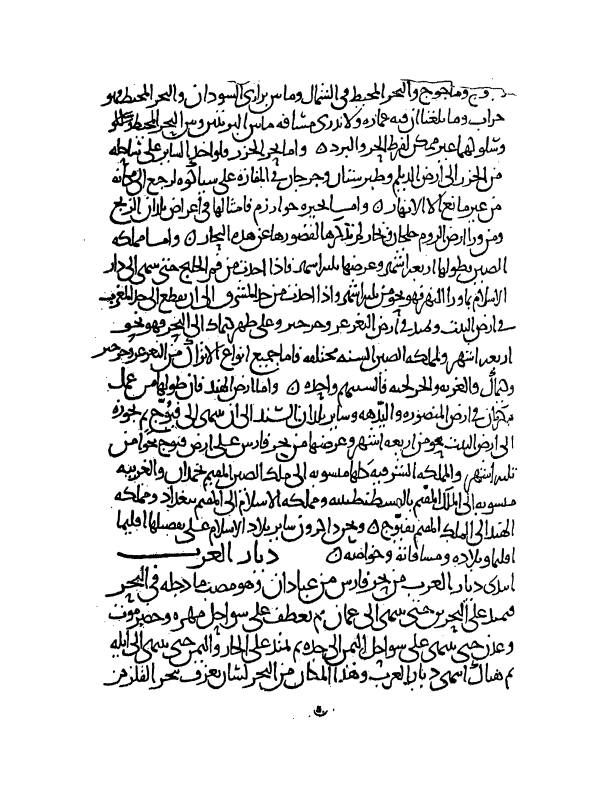 وماجوج والبحر المحيط في الشمال وما بين براري السودان والبحر المحيط فهو
خراب وما بلغنا ان فيه عماره ولا ندري مسافه ما بين البريتين وبين البحر المحيط
وسلوكهما غير ممكن لفرط الحر والبرد ٥ واما بحر الخزر فلو اخذ السائر على ساحله
من الخزر الى ارض الديلم وطبرستان وجرجان في المفازه على سياكوه لرجع الى مكانه
من غير مانع الا الانهار ٥ واما بحيره خوارزم فامثالها في اعراض بلدان الزنج
ومن ورا ارض الروم خلجان وبحار لم نذكرها لقصورها عن هذه البحار ٥ واما مملكه
الصين بطولها اربعه اشهر وعرضها ثلثه اشهر فاذا اخذت من فم الخليج حتى تنتهي الى دار
الاسلام بما ورا النهر فهو نحو من ثلثه اشهر واذا اخذت من حد المشرق الى ان تقطع الى حد المغرب
في ارض التبت وتمتد في ارض التغزغز وخرخيز وعلى ظهر كيماك الى البحر فهو نحو
اربعه اشهر ولمملكه الصين السنه مختلفه فاما جميع انواع الاتراك من التغزغز وخرخيز
وكيماك والغزيه والخرلخيه فالسنتهم واحده ٥ واما ارض الهند فان طولها من عمل
مكران في ارض المنصوره والبدهه وساير بلدان السند الى ان تنتهي الى قنوج ثم تجوزه
الى ارض التبت نحو من اربعه اشهر وعرضها من بحر فارس على ارض قنوج نحوا من
ثلثه اشهر والمملكه الشرقيه كلها منسوبه الى ملك الصين المقيم بخمدان والغربيه
منسوبه الى الملك المقيم بالقسطنطينيه ومملكه الاسلام الى المقيم ببغداد ومملكه
الهند الى الملك المقيم بقنوج ٥ ونحن ذاكرون ساير بلاد الاسلام على تفصيلها اقليما
اقليما وبلاده ومسافاته وخواصه ٥ ديار العرب
ابتدي ديار العرب من بحر فارس من عبادان وهو مصب ما دجله في البحر
فيمتد على البحرين حتى ينتهي الى عمان ثم يعطف على سواحل مهره وحضرموت
وعدن حتى ينتهي على سواحل اليمن الى جده ثم يمتد على الجار والمدين حتى ينتهي الى ايله
ثم هناك انتهى ديار العرب وهذا المكان من البحر لسان يعرف ببحر القلزم من